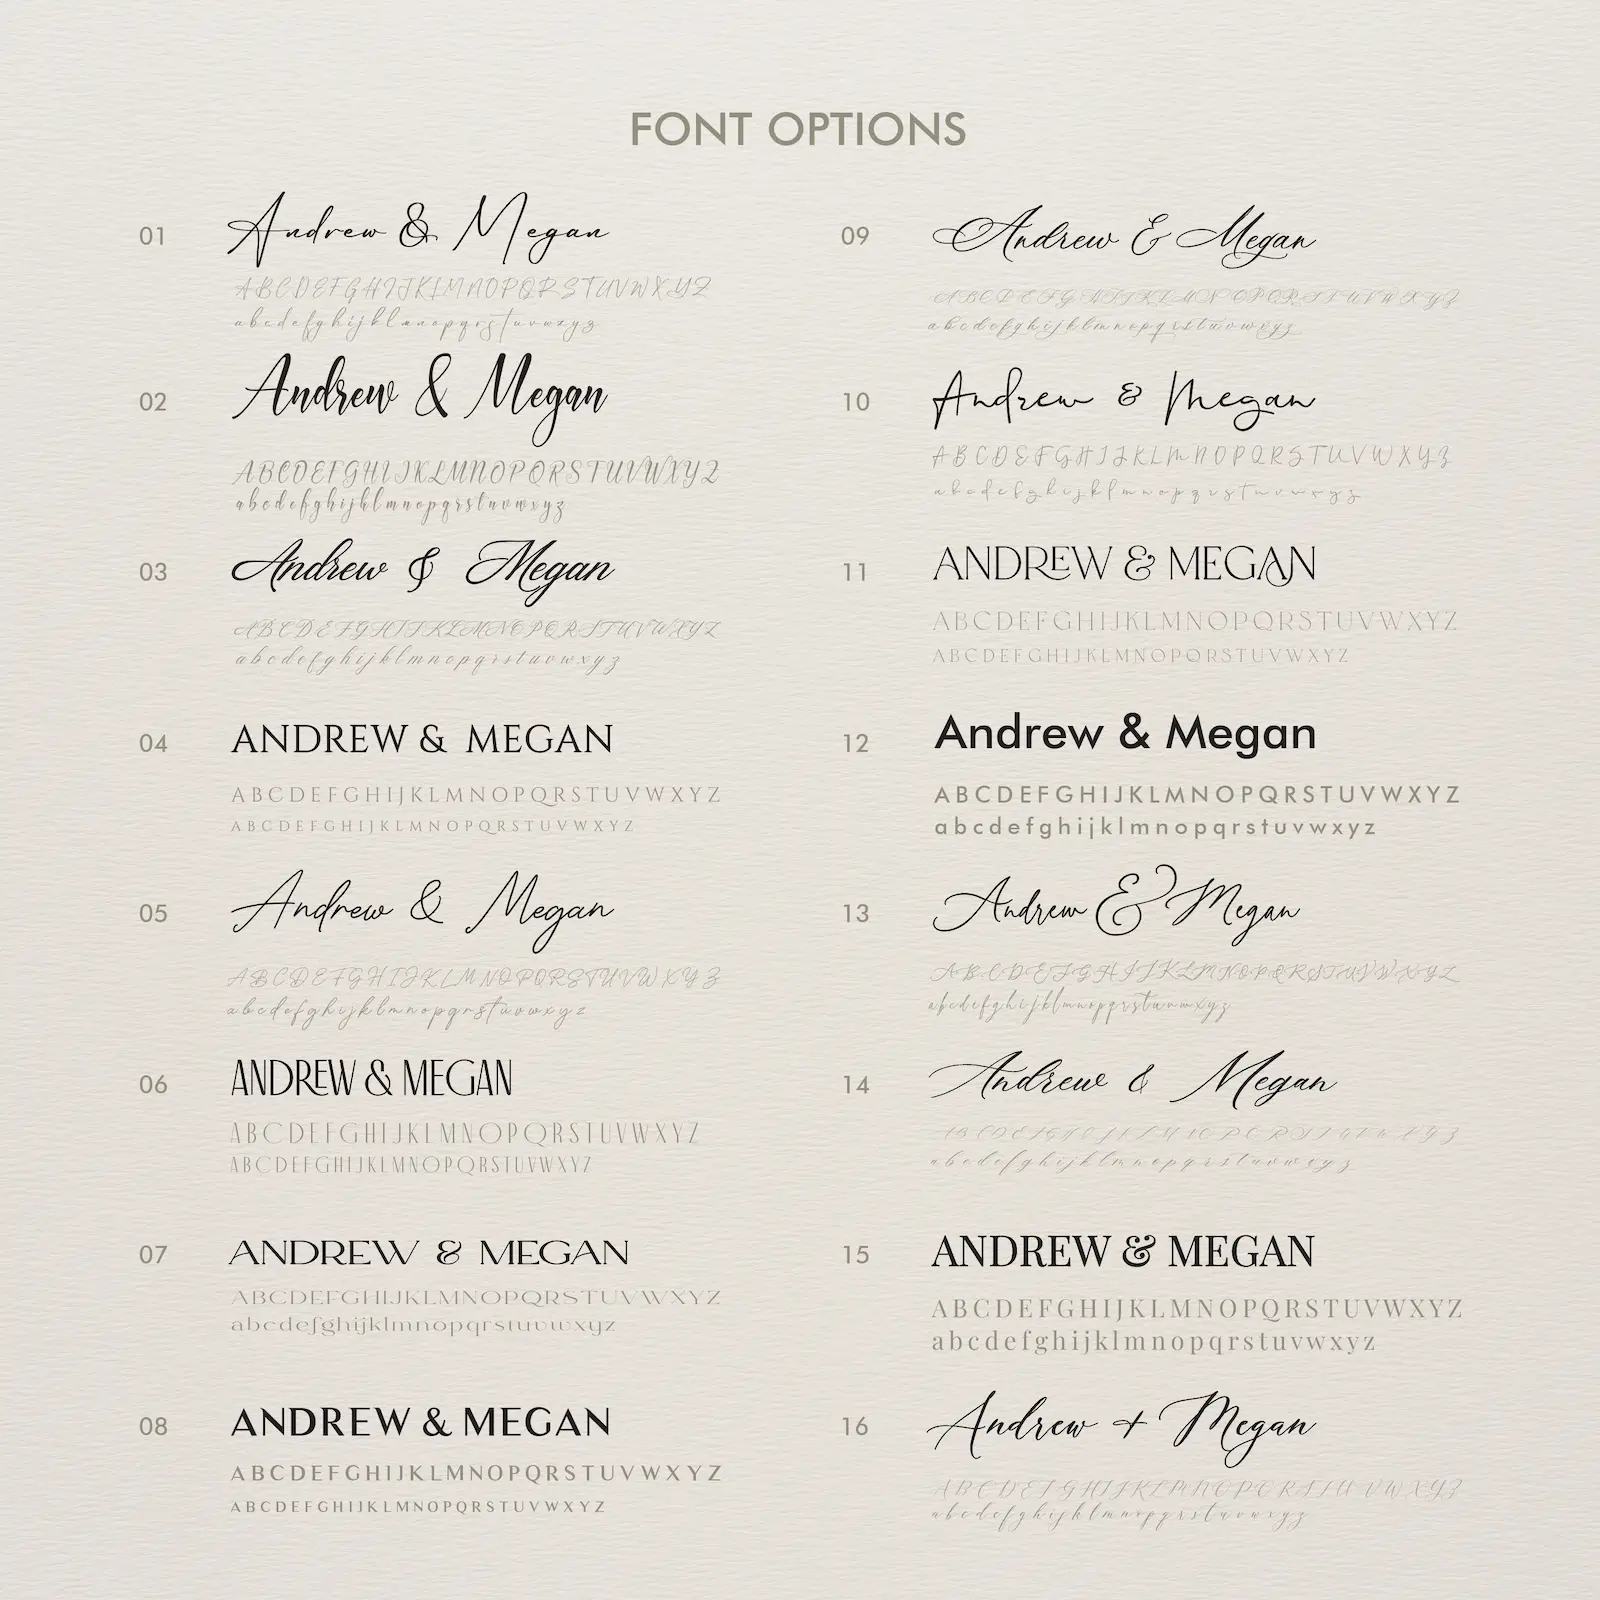 FONT OPTIONS
01
Andrew & Megan
ABCDEFGHIJKLMNOPQRSTUVWXYZ
abcdefghijklmnopqrstuvwxyz
02
Andrew & Megan
ABCDEFGHIJKLMNOPQRSTUVWXYZ
abcdefghijklmnopqrstuvwxyz
03
Andrew & Megan
ABCDEFGHIJKLMNOPQRSTUVWXYZ
abcdefghijklmnopqrstuvwxyz
04
ANDREW & MEGAN
ABCDEFGHIJKLMNOPQRSTUVWXYZ
ABCDEFGHIJKLMNOPQRSTUVWXYZ
05
Andrew & Megan
ABCDEFGHIJKLMNOPQRSTUVWXYZ
abcdefghijklmnopqrstuvwxyz
06
ANDREW & MEGAN
ABCDEFGHIJKLMNOPQRSTUVWXYZ
ABCDEFGHIJKLMNOPQRSTUVWXYZ
07
ANDREW & MEGAN
ABCDEFGHIJKLMNOPQRSTUVWXYZ
abcdefghijklmnopqrstuvwxyz
08
ANDREW & MEGAN
ABCDEFGHIJKLMNOPQRSTUVWXYZ
ABCDEFGHIJKLMNOPQRSTUVWXYZ
09
Andrew & Megan
ABCDEFGHIJKLMNOPQRSTUVWXYZ
abcdefghijklmnopqrstuvwxyz
10
Andrew & Megan
ABCDEFGHIJKLMNOPQRSTUVWXYZ
abcdefghijklmnopqrstuvwxyz
11
ANDREW & MEGAN
ABCDEFGHIJKLMNOPQRSTUVWXYZ
ABCDEFGHIJKLMNOPQRSTUVWXYZ
12
Andrew & Megan
ABCDEFGHIJKLMNOPQRSTUVWXYZ
abcdefghijklmnopqrstuvwxyz
13
Andrew & Megan
ABCDEFGHIJKLMNOPQRSTUVWXYZ
abcdefghijklmnopqrstuvwxyz
14
Andrew & Megan
ABCDEFGHIJKLMNOPQRSTUVWXYZ
abcdefghijklmnopqrstuvwxyz
15
ANDREW & MEGAN
ABCDEFGHIJKLMNOPQRSTUVWXYZ
abcdefghijklmnopqrstuvwxyz
16
Andrew + Megan
ABCDEFGHIJKLMNOPQRSTUVWXYZ
abcdefghijklmnopqrstuvwxyz